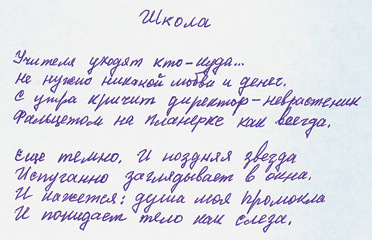 Школа
Учителя уходят кто-куда...
Не нужно никакой любви и денег.
С утра кричит директор-неврастеник
Фальцетом на планерке как всегда.
Еще темно. И поздняя звезда
Испуганно заглядывает в окна.
И кажется: душа моя промокла
И покидает тело как слеза.